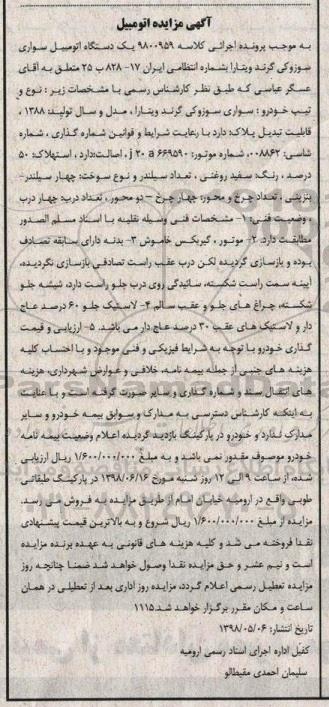 آگهی مزایده اتومبیل
به موجب پرونده اجرائی کلاسه ۹۸۰۰۹۵۹ یک دستگاه اتومبیل سواری
سوزوکی گرند ویتارا بشماره انتظامی ایران ۱۷- ۸۲۸ ب ۲۵ متعلق به آقای
عسگر عباسی که طبق نظر کارشناس رسمی با مشخصات زیر : نوع و
تیپ خودرو : سواری سوزوکی گرند ویتارا ، مدل و سال تولید: ۱۳۸۸ ،
قابلیت تبدیل پلاک: دارد با رعایت شرایط و قوانین شماره گذاری ، شماره
شاسی: ۰۰۸۸۶۲ شماره موتور: j ۲۰ a ۶۶۹۵۹۰ ، اصالت:دارد ، استهلاک: ۵۰
درصد ، رنگ: سفید روغنی ، تعداد سیلندر و نوع سوخت: چهار سیلندر-
بنزینی ، تعداد چرخ و محور: چهار چرخ – دو محور ، تعداد درب: چهار درب
، وضعیت فنی: ۱- مشخصات فنی وسیله نقلیه با اسناد مسلم الصدور
مطابقت دارد. ۲- موتور ، گیربکس خاموش ۳- بدنه دارای سابقه تصادف
بوده و بازسازی گردیده لکن درب عقب راست تصادفی بازسازی نگردیده،
آیینه سمت راست شکسته، سائیدگی روی درب جلو راست دارد، شیشه جلو
شکسته، چراغ های جلو و عقب سالم ۴- لاستیک جلو ۶۰ درصد عاج
دار و لاستیک های عقب ۳۰ درصد عاج دار می باشد. ۵- ارزیابی و قیمت
گذاری خودرو با توجه به شرایط فیزیکی و فنی موجود و با احتساب کلیه
هزینه های جنبی از جمله بیمه نامه، خلافی و عوارض شهرداری، هزینه
های انتقال سند و شماره گذاری و سایر صورت گرفته است و با عنایت
به اینکه کارشناس دسترسی به مدارک و سوابق بیمه خودرو و سایر
مدارک ندارد و خودرو در پارکینگ بازدید گردیده اعلام وضعیت بیمه نامه
خودرو موصوف مقدور نمی باشد و به مبلغ ۱/۶۰۰/۰۰۰/۰۰۰ ریال ارزیابی
شده، از ساعت ۹ الی ۱۲ روز شنبه مورخ ۱۳۹۸/۰۶/۱۶ در پارکینگ طبقاتی
طوبی واقع در ارومیه خیابان امام از طریق مزایده به فروش می رسد.
مزایده از مبلغ ۱/۶۰۰/۰۰۰/۰۰۰ ریال شروع و به بالاترین قیمت پیشنهادی
نقدا فروخته می شد و کلیه هزینه های قانونی به عهده برنده مزایده
است و نیم عشر و حق مزایده نقدا وصول خواهد شد ضمنا چنانچه روز
مزایده تعطیل رسمی اعلام گردد، مزایده روز اداری بعد از تعطیلی در همان
ساعت و مکان مقرر برگزار خواهد شد ۱۱۱۵
تاریخ انتشار: ۱۳۹۸/۰۵/۰۶
کفیل اداره اجرای اسناد رسمی ارومیه
سلیمان احمدی مقیطالو